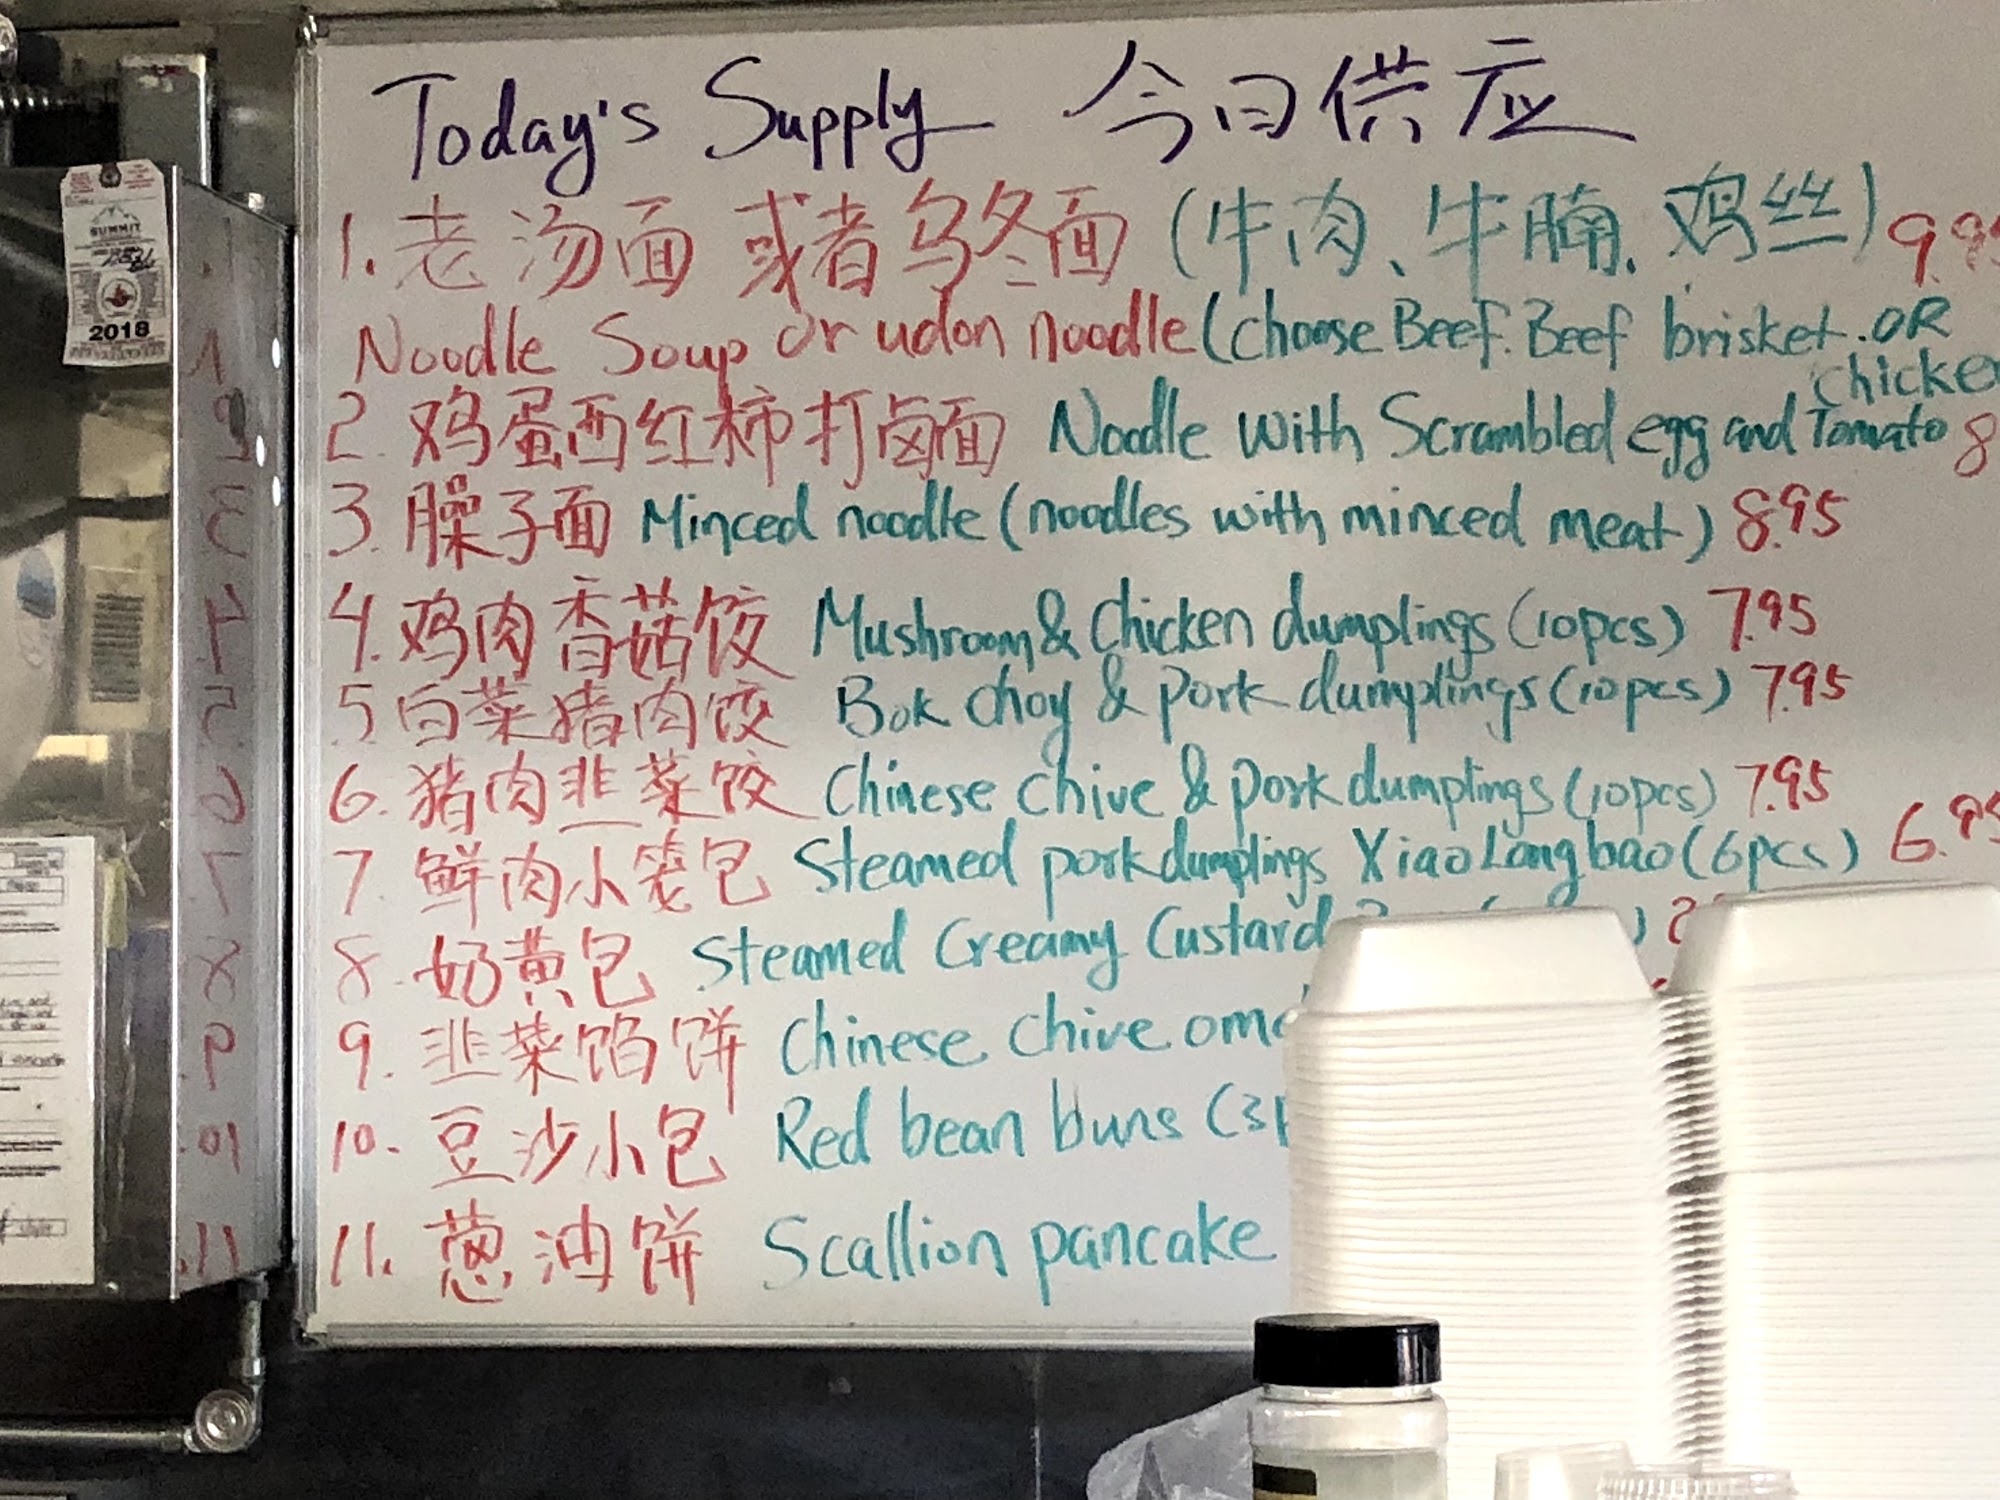 Today's Supply 今日供应
1. 老汤面 或者乌冬面 (牛肉、牛腩、鸡丝) 9.9
Noodle Soup or udon noodle (choose Beef. Beef brisket. OR
chicke
2. 鸡蛋西红柿打卤面 Noodle with Scrambled egg and Tomato 8
3. 臊子面 Minced noodle (noodles with minced meat) 8.95
4. 鸡肉香菇饺 Mushroom & Chicken dumplings (10pcs) 7.95
5 白菜猪肉饺 Bok choy & pork dumplings (10pcs) 7.95
6. 猪肉韭菜饺 Chinese chive & pork dumplings (10pcs) 7.95
7. 鲜肉小笼包 Steamed pork dumplings XiaoLongbao (6pcs) 6.95
8. 奶黄包 Steamed Creamy Custard
9. 韭菜馅饼 Chinese chive ome
10. 豆沙小包 Red bean buns (3
11. 葱油饼 Scallion pancake
SUMMIT
2018